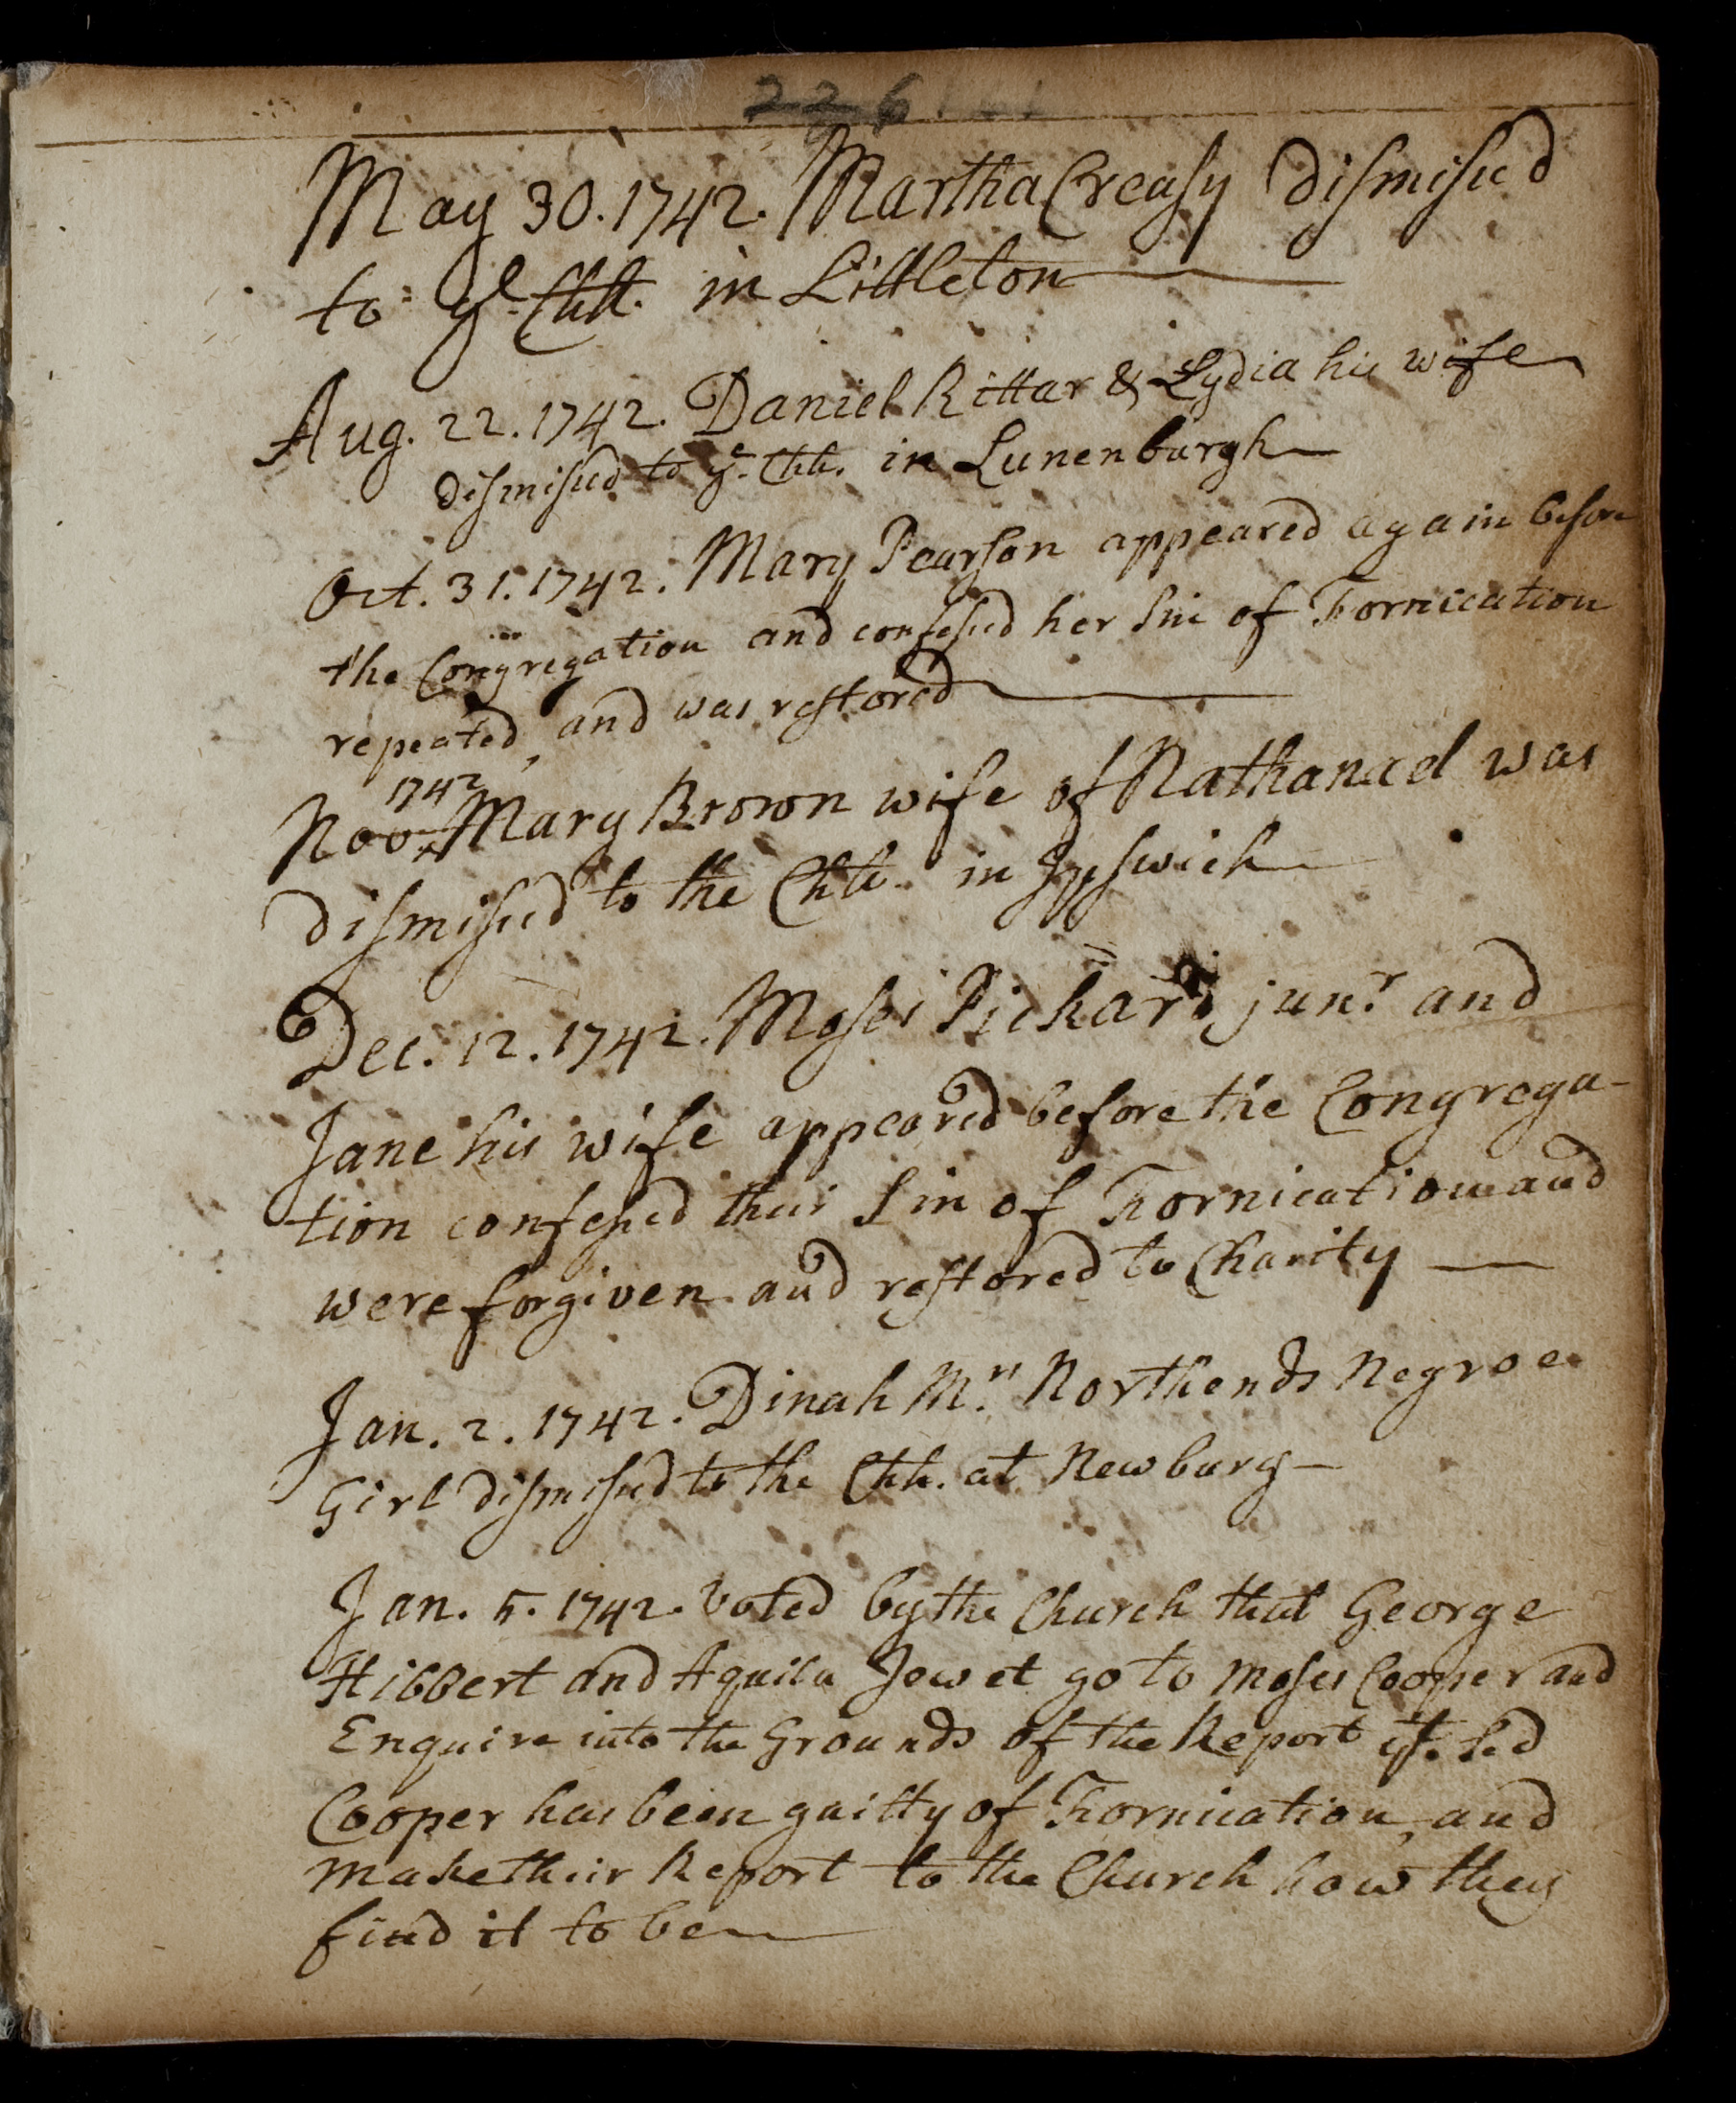 226
May 30. 1742. Martha Creasy dismissed
to ye Chh. in Littleton
Aug. 22. 1742. Daniel Kittar & Lydia his wife
dismissed to ye Chh. in Lunenburgh
Oct. 31. 1742. Mary Pearson appeared again before
the Congregation and confessed her Sin of Fornication
repeated, and was restored
1742
Nov. Mary Brown wife of Nathanael was
dismissed to the Chh. in Ipswich
Dec. 12. 1742. Moses Pickard junr. and
Jane his wife appeared before the Congrega-
tion confessed their Sin of Fornication and
were forgiven and restored to Charity
Jan. 2. 1742. Dinah Mrs. Northends Negroe
Girl dismissed to the Chh. at Newbury
Jan. 5. 1742. Voted by the Church that George
Hibbert and Aquila Jewet go to Moses Cooper and
Enquire into the Grounds of the Report yt. sed
Cooper has been guilty of Fornication, and
make their Report to the Church how they
find it to be